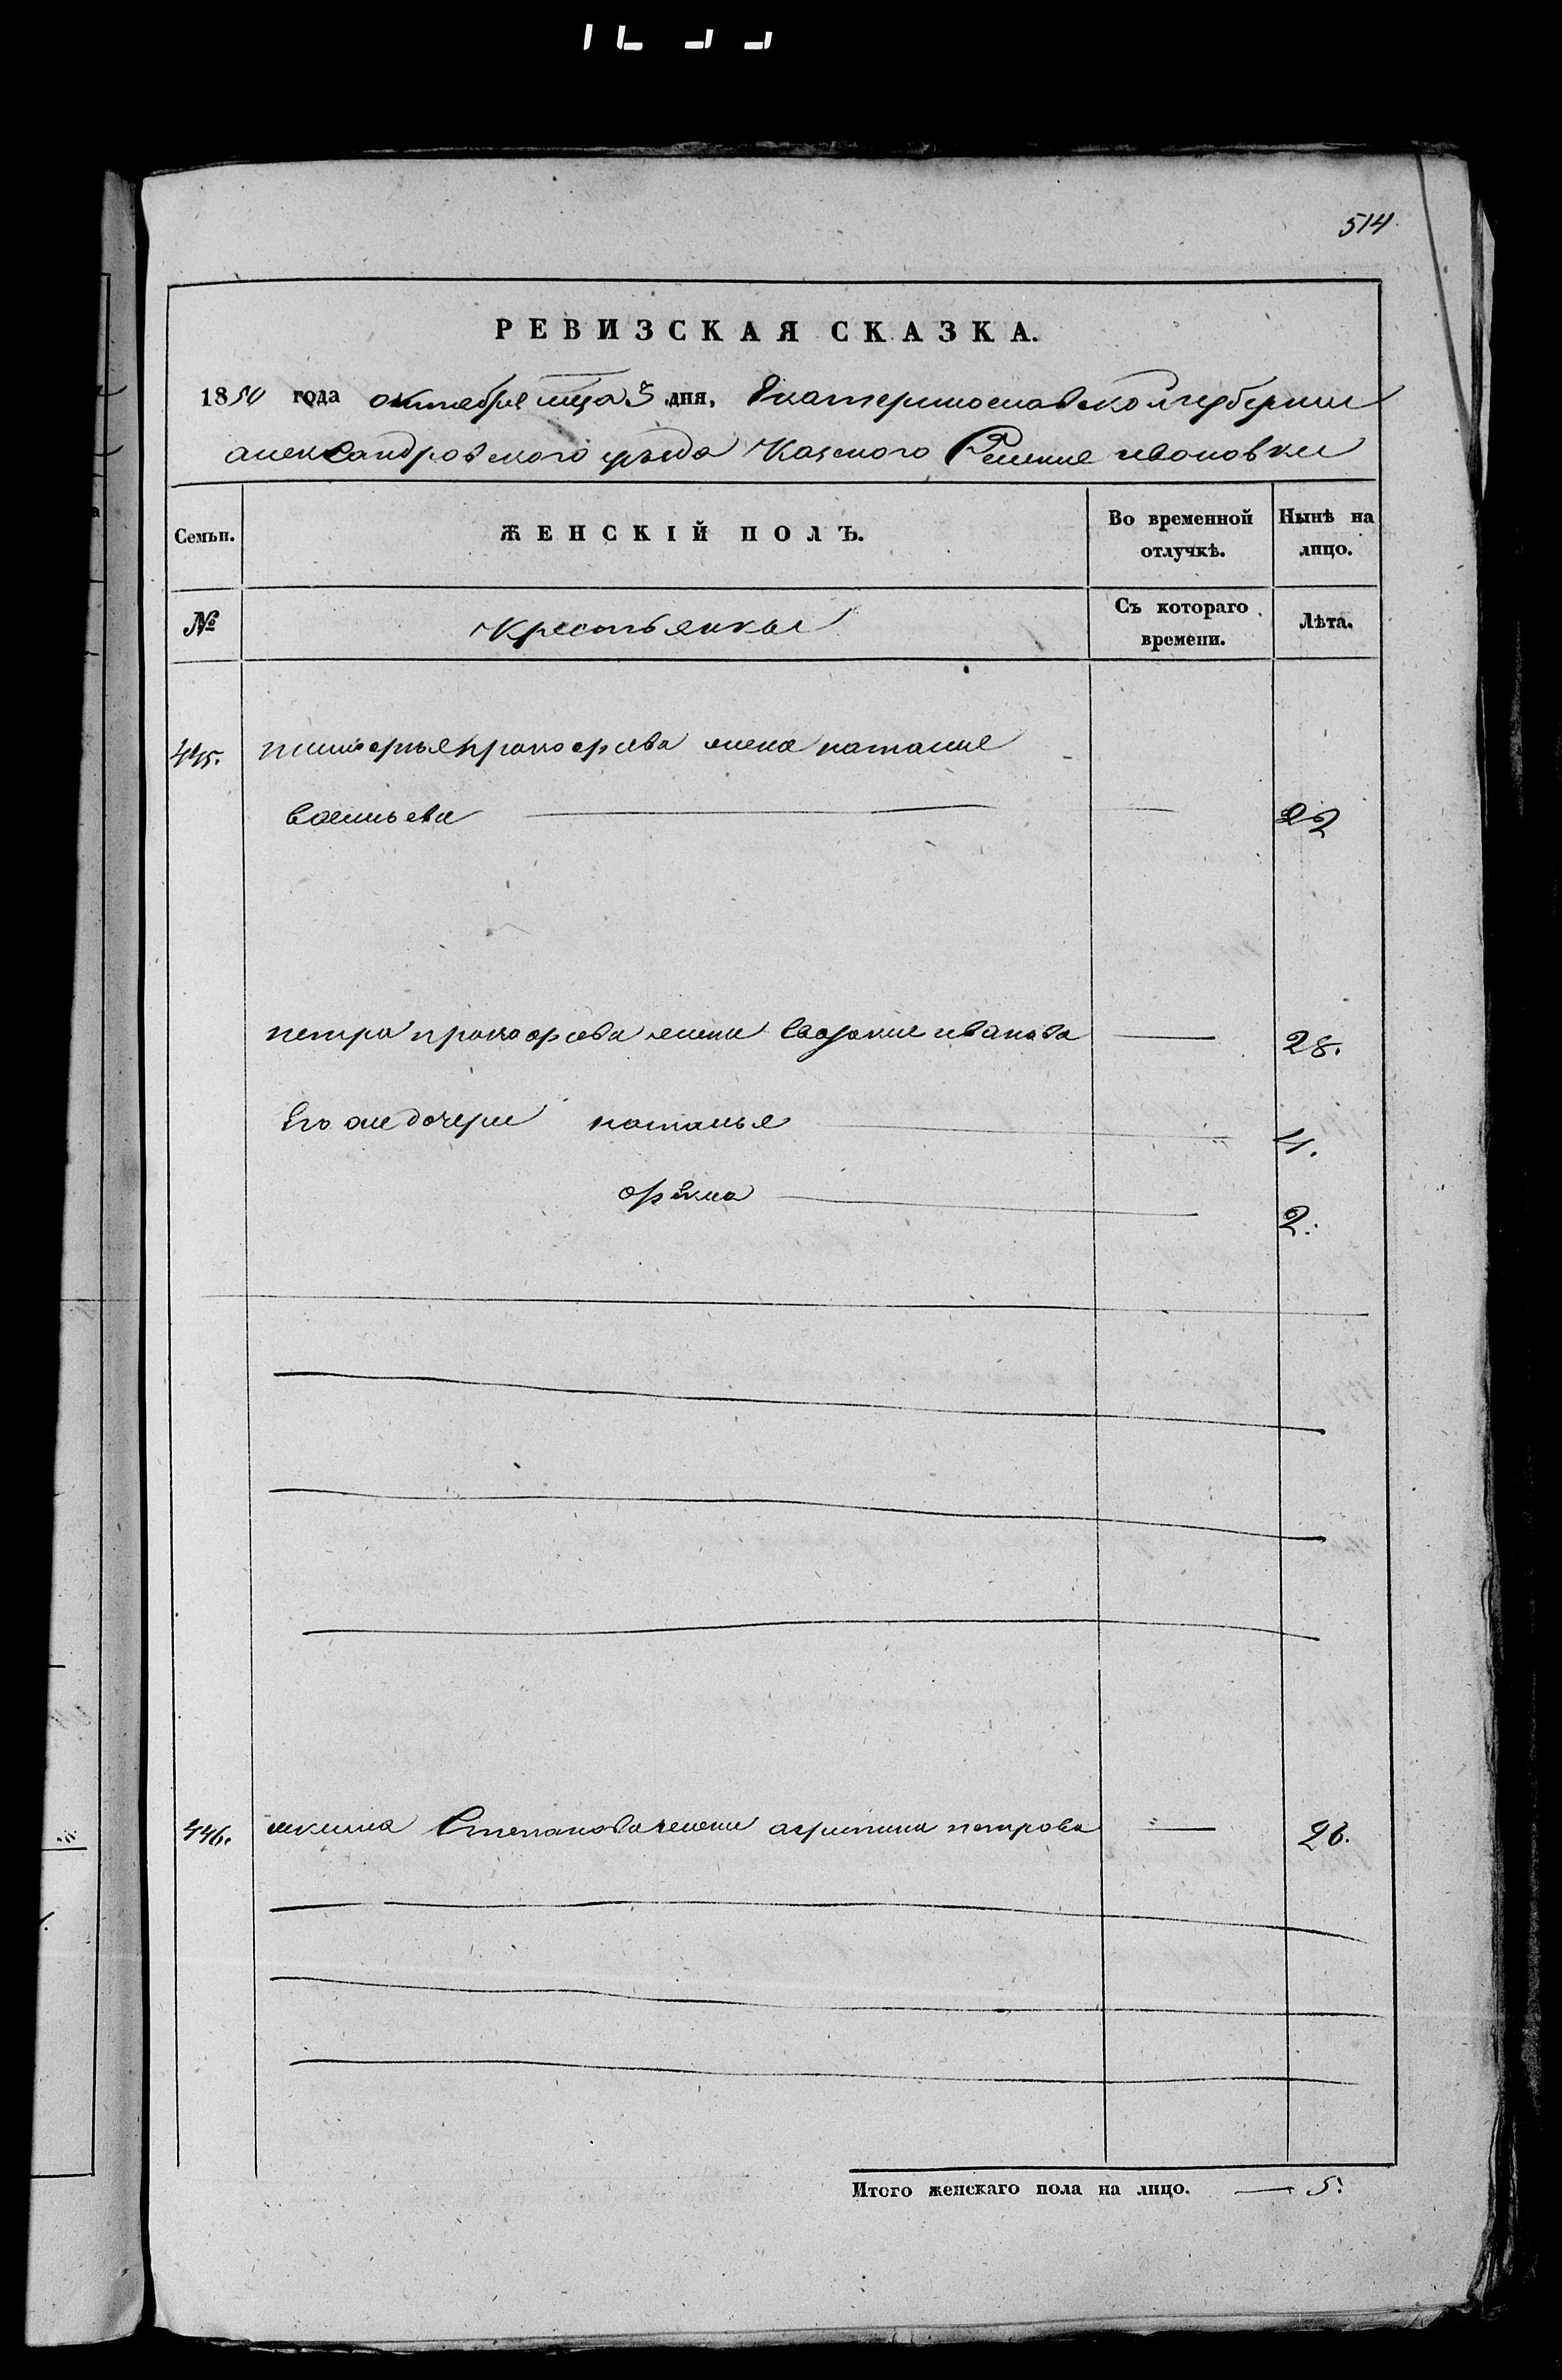 514
РЕВИЗСКАЯ СКАЗКА.
1850 года октября мца 3 дня, Екатеринославской губернии
александровского уезда Казеного Селение ивановки
Семьи. ЖЕНСКІЙ ПОЛЪ. Во временной отлучкѣ. Нынѣ на лицо.
№ крестьянки Съ котораго времени. Лѣта.
445. прокофьева жена наталия
васильева 22
петра прокофьева жена Евдокия иванова 28.
Его же дочери наталья 4.
2.
446. екима Степанова жена агрипина петрова 26.
Итого женскаго пола на лицо. 5.